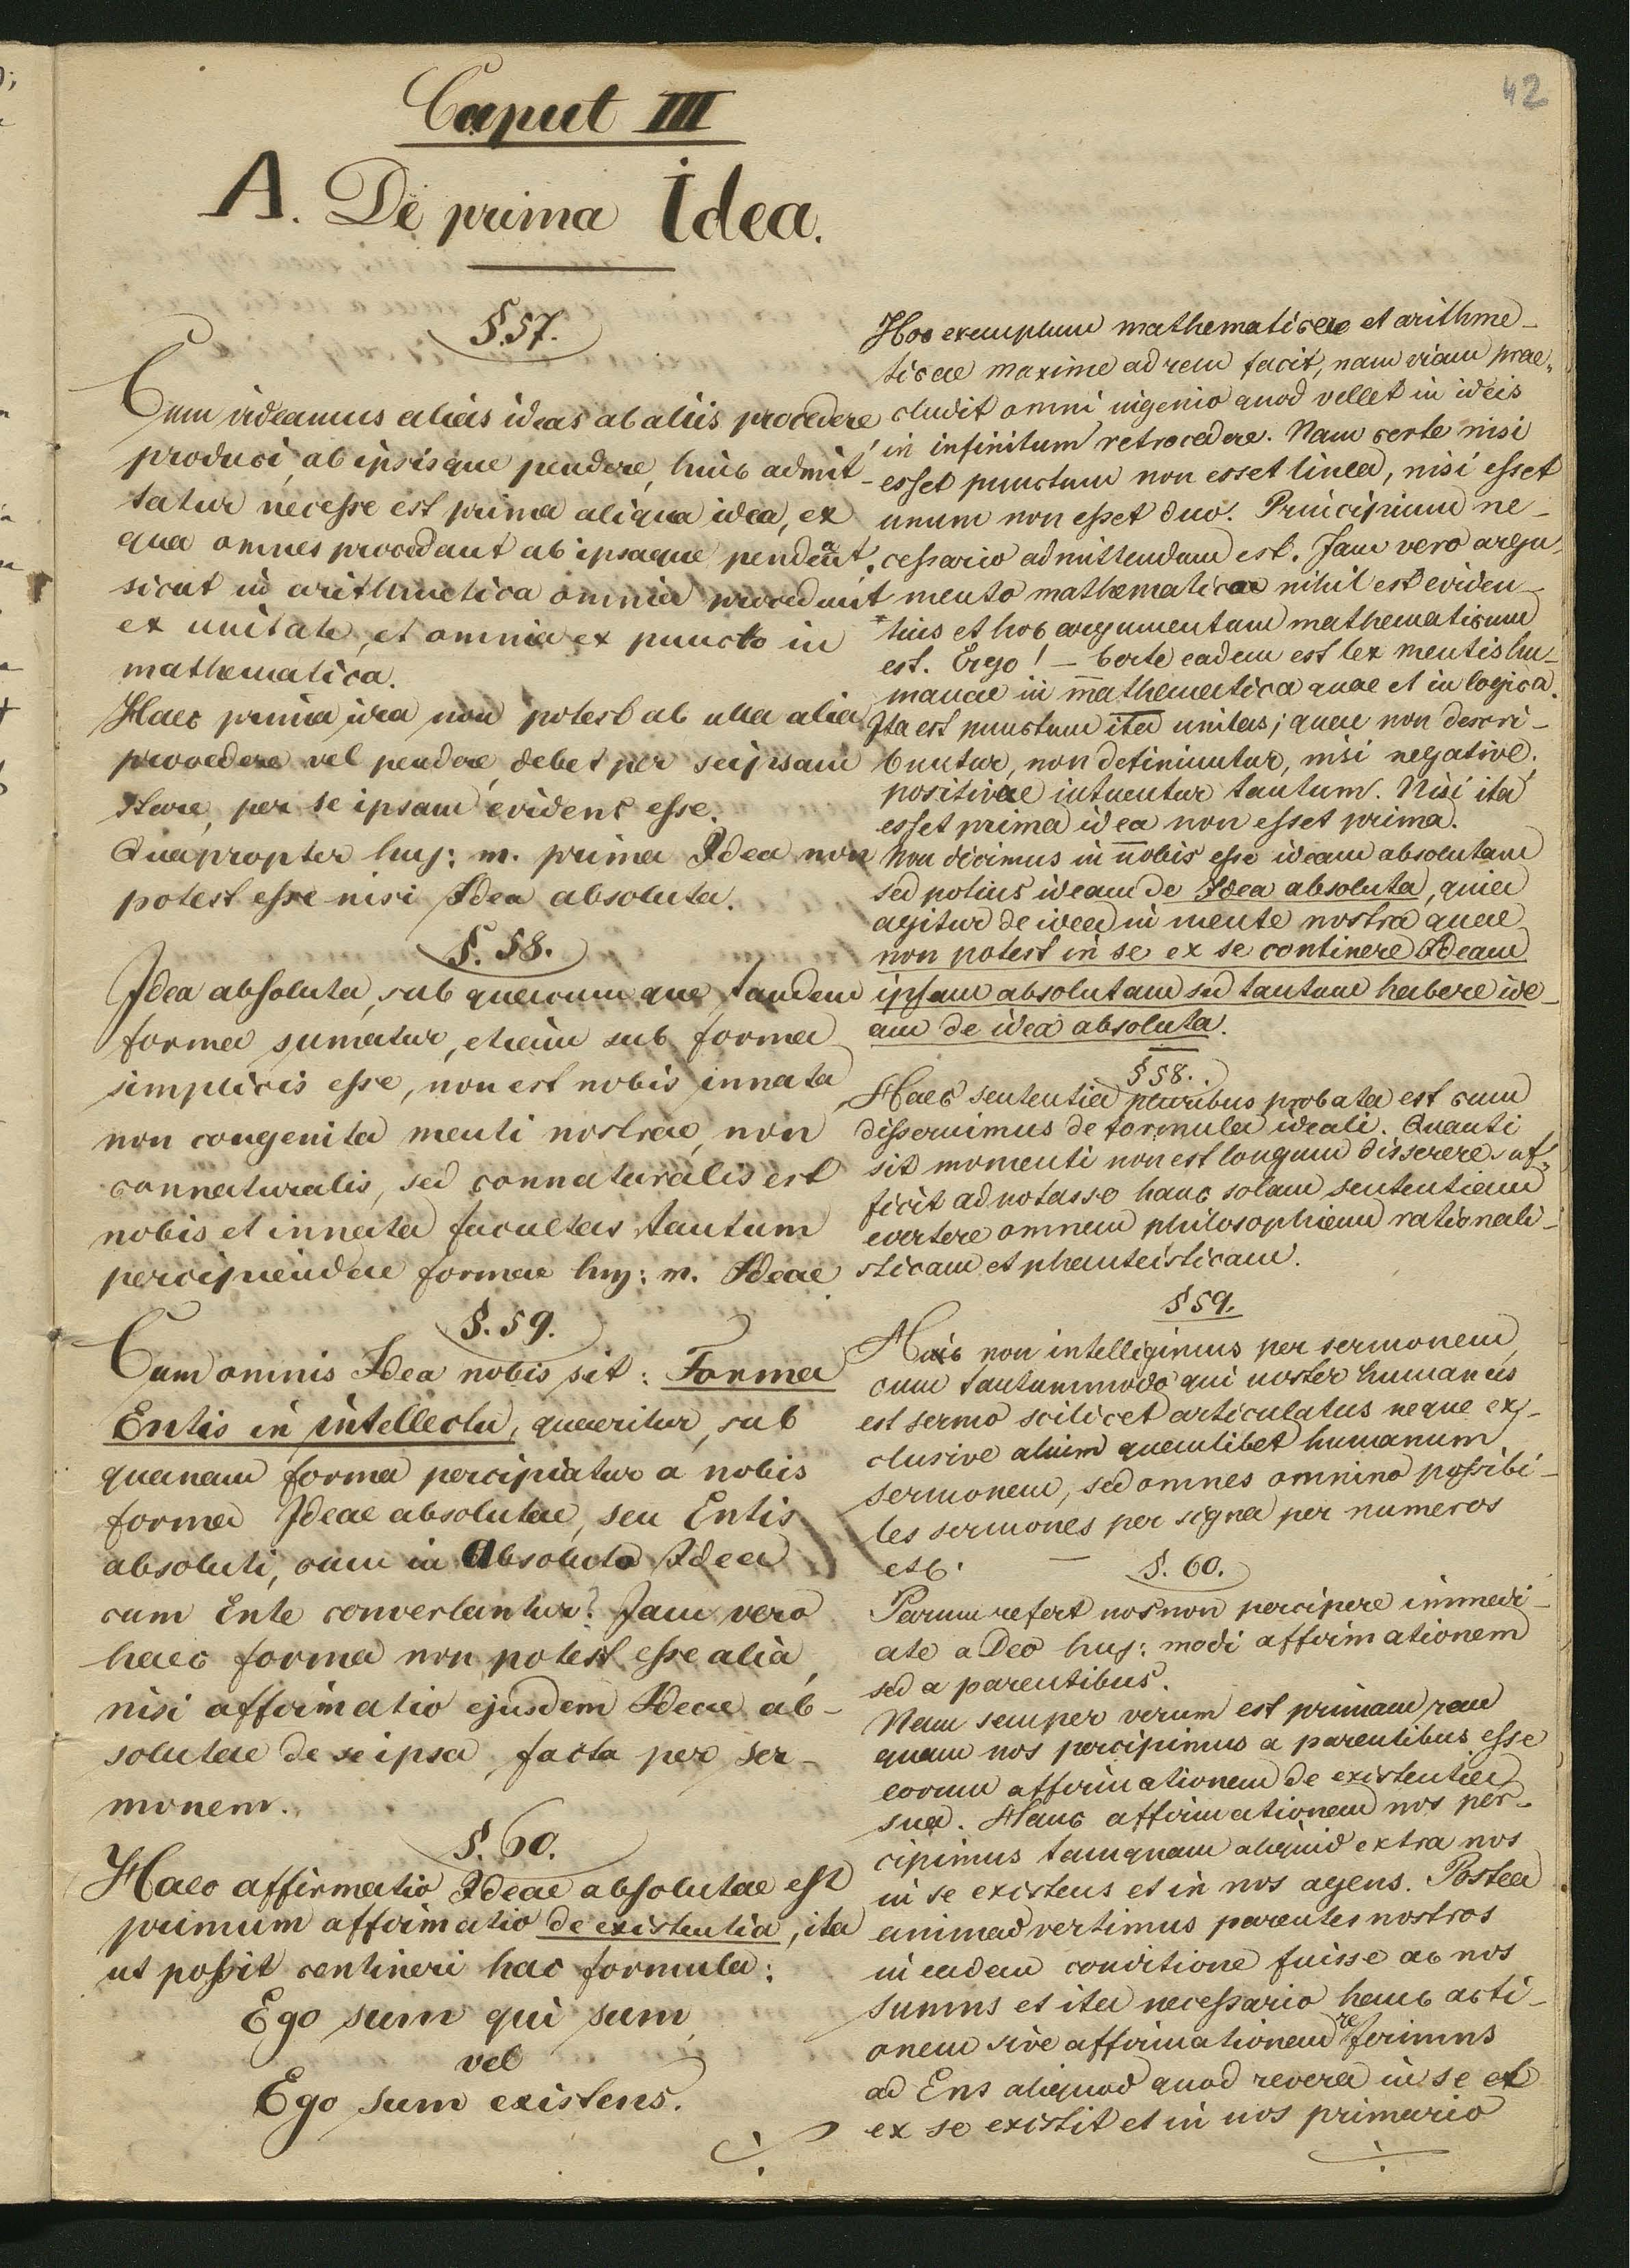 42
Caput III
A. De prima Idea.
§.57.
Cum videamus alias ideas ab aliis procedere,
produci, ab ipsisque pendere, hinc admit-
tatur necesse est prima aliqua idea, ex
qua omnes procedant ab ipsaque pendeant,
sicut in arithmetica omnia procedunt
ex unitate, et omnia ex puncto in
mathematica.
Haec prima idea non potest ab ulla alia
procedere vel pendere, debet per seipsam
stare, per se ipsam evidens esse.
Quapropter huj: m. prima Idea non
potest esse nisi Idea absoluta.
§. 58.
Idea absoluta, sub quacumque tandem
forma sumatur, etiam sub forma
simplicis esse, non est nobis innata
non congenita menti nostrae, non
connaturalis, sed connaturalis est
nobis et innata facultas tantum
percipiendae formae huj: m. Ideae
§. 59.
Cum omnis Idea nobis sit: Forma
Entis in intellectu, quaeritur, sub
quanam forma percipiatur a nobis
forma Ideae absolutae, seu Entis
absoluti, cum in Absoluto Idea
cum Ente convertantur? Jam vero
haec forma non potest esse alia,
nisi affirmatio ejusdem Ideae ab-
solutae de se ipsa, facta per ser-
monem.
§. 60.
Haec affirmatio Ideae absolutae est
primum affirmatio de existentia, ita
ut possit contineri hac formula:
Ego sum qui sum,
vel
Ego sum existens.
Hoc exemplum mathematicae et arithme-
ticae maxime ad rem facit, nam viam prae-
cludit omni ingenio quod vellet in ideis
in infinitum retrocedere. Nam certe nisi
esset punctum non esset linea, nisi esset
unum non esset duo. Principium ne-
cessario admittendum est. Jam vero argu-
mento mathematicae nihil est eviden-
tius et hoc argumentum mathematicum
est. Ergo! - Certe eadem est lex mentis hu-
manae in mathematica quae et in logica.
Ita est punctum ita unitas; quae non descri-
buntur, non definiuntur, nisi negative.
positivae intuentur tantum. Nisi ita
esset prima idea non esset prima.
Non dicimus in nobis esse ideam absolutam
sed potius ideam de Idea absoluta, quia
agitur de idea in mente nostra quae
non potest in se ex se continere Ideam
ipsam absolutam sed tantum habere ide-
am de idea absoluta.
§ 58.
Haec sententia pluribus probata est cum
disseruimus de formula ideali. Quanti
sit momenti non est longum disserere, suf-
ficit adnotasse hanc solam sententiam
evertere omnem philosophiam rationali-
sticam et phanteisticam.
§ 59.
Huic non intelligimus per sermonem
eum tantummodo qui noster humanus
est sermo scilicet articulatus neque ex-
clusive alium quemlibet humanum
sermonem, sed omnes omnino possibi-
les sermones per signa per numeros
etc.
§. 60.
Parum refert nos non percipere immedi-
ate a Deo huj: modi affirmationem
sed a parentibus.
Nam semper verum est primam rem
quam nos percipimus a parentibus esse
eorum affirmationem de existentia
sua. Hanc affirmationem nos per-
cipimus tamquam aliquid extra nos
in se existens et in nos agens. Postea
animadvertimus parentes nostros
in eadem conditione fuisse ac nos
sumus et ita necessario hanc acti-
onem sive affirmationem referimus
ad Ens aliquod quod revera in se et
ex se existit et in nos primario